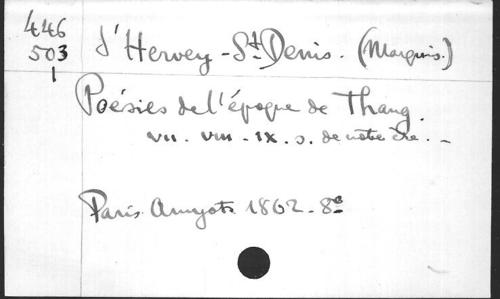 446
503
1
d'Hervey-St Denis. (Marquis.)
Poésies de l'époque de Thang.
VII. VIII - IX. s. de notre ère. -
Paris Amyot 1862 - 8°